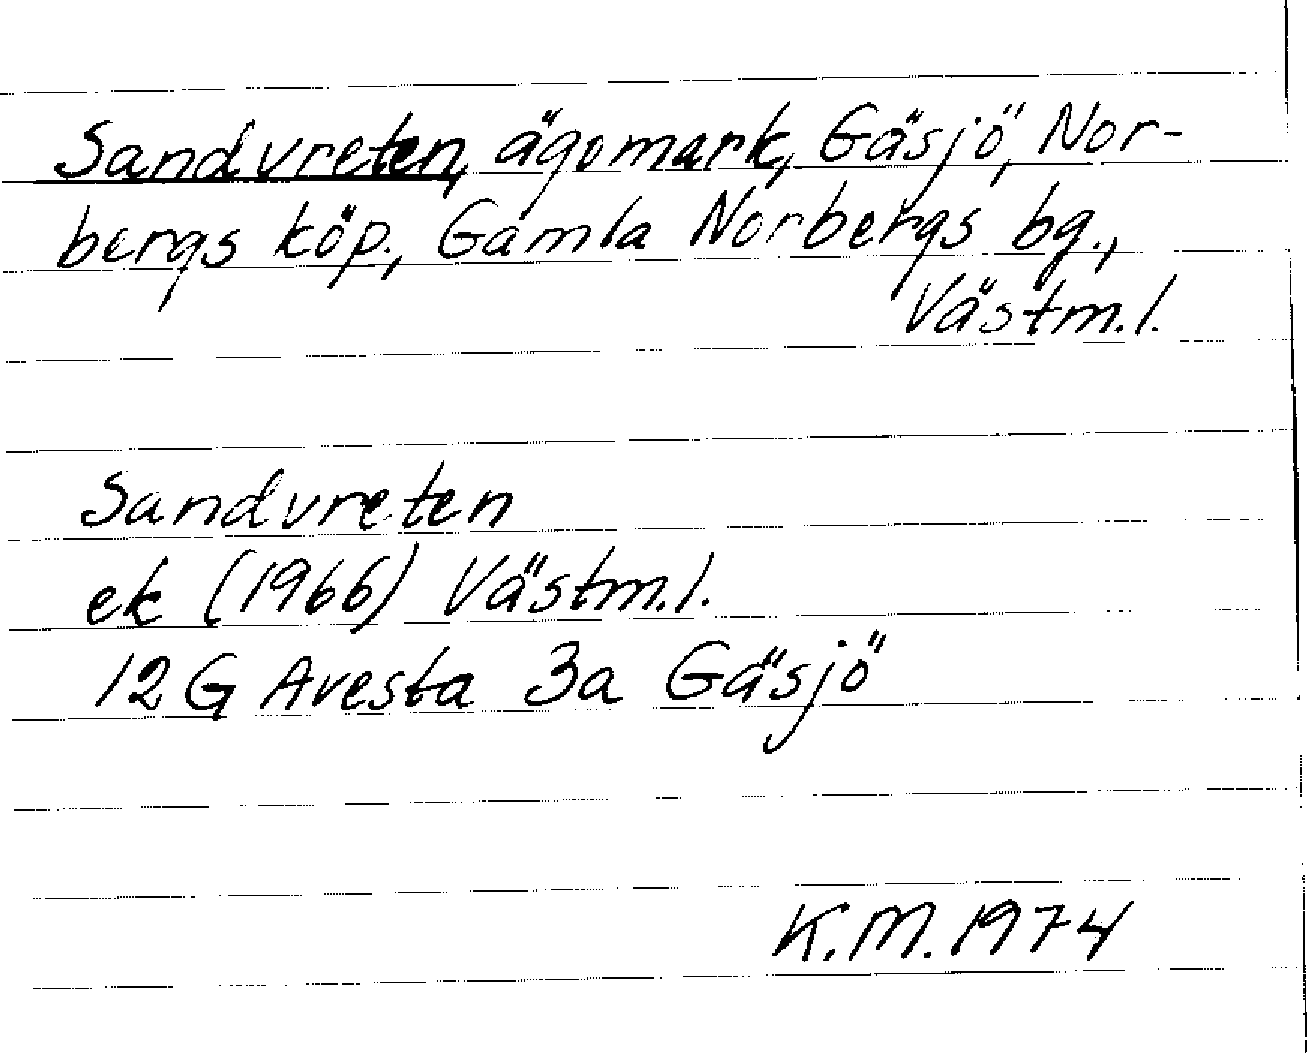 Sandvreten, ägomark, Gäsjö, Nor-
bergs köp., Gamla Norbergs bg.,
Västm.l.
Sandvreten
ek (1966) Västm.l.
12G Avesta 3a Gäsjö
K.M. 1974